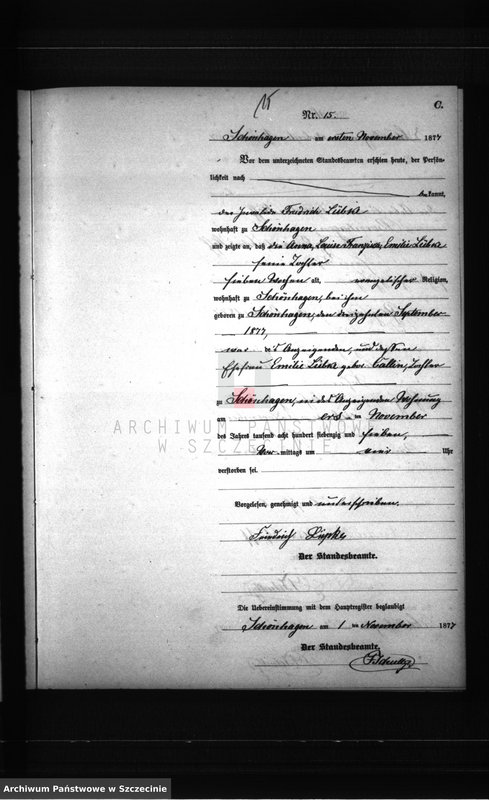 15
C.
Nr. 15.
Schönhagen am ersten November 1877
Vor dem unterzeichneten Standesbeamten erschien heute, der Persön-
lichkeit nach
bekannt,
der Fridrich Lübke
wohnhaft zu Schönhagen
und zeigte an, daß die Anna, Louise Franziska, Emilie Lübke
seine Tochter
sieben Wochen alt, evangelischer Religion,
wohnhaft zu Schönhagen, bei ihm
geboren zu Schönhagen, den dreizehnten September
1877,
war des Anzeigenden, und dessen
Ehefrau Emilie Lübke gebor. Tochter
zu Schönhagen, in des Anzeigenden Wohnung
am ers ten November
des Jahres tausend acht hundert siebenzig und sieben,
Vor mittags um vier Uhr
verstorben sei.
Vorgelesen, genehmigt und unterschrieben.
Friedrich Lüpke
Der Standesbeamte.
Die Uebereinstimmung mit dem Hauptregister beglaubigt
Schönhagen am 1 ten November 1877
Der Standesbeamte.
ARCHIWUM PAŃSTWOWE
W SZCZECINIE
Archiwum Państwowe w Szczecinie